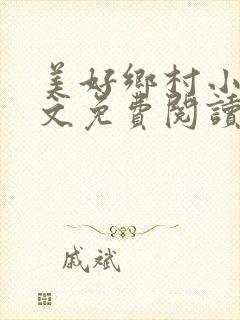 美好鄉村小
文免費閱讀
戚斌